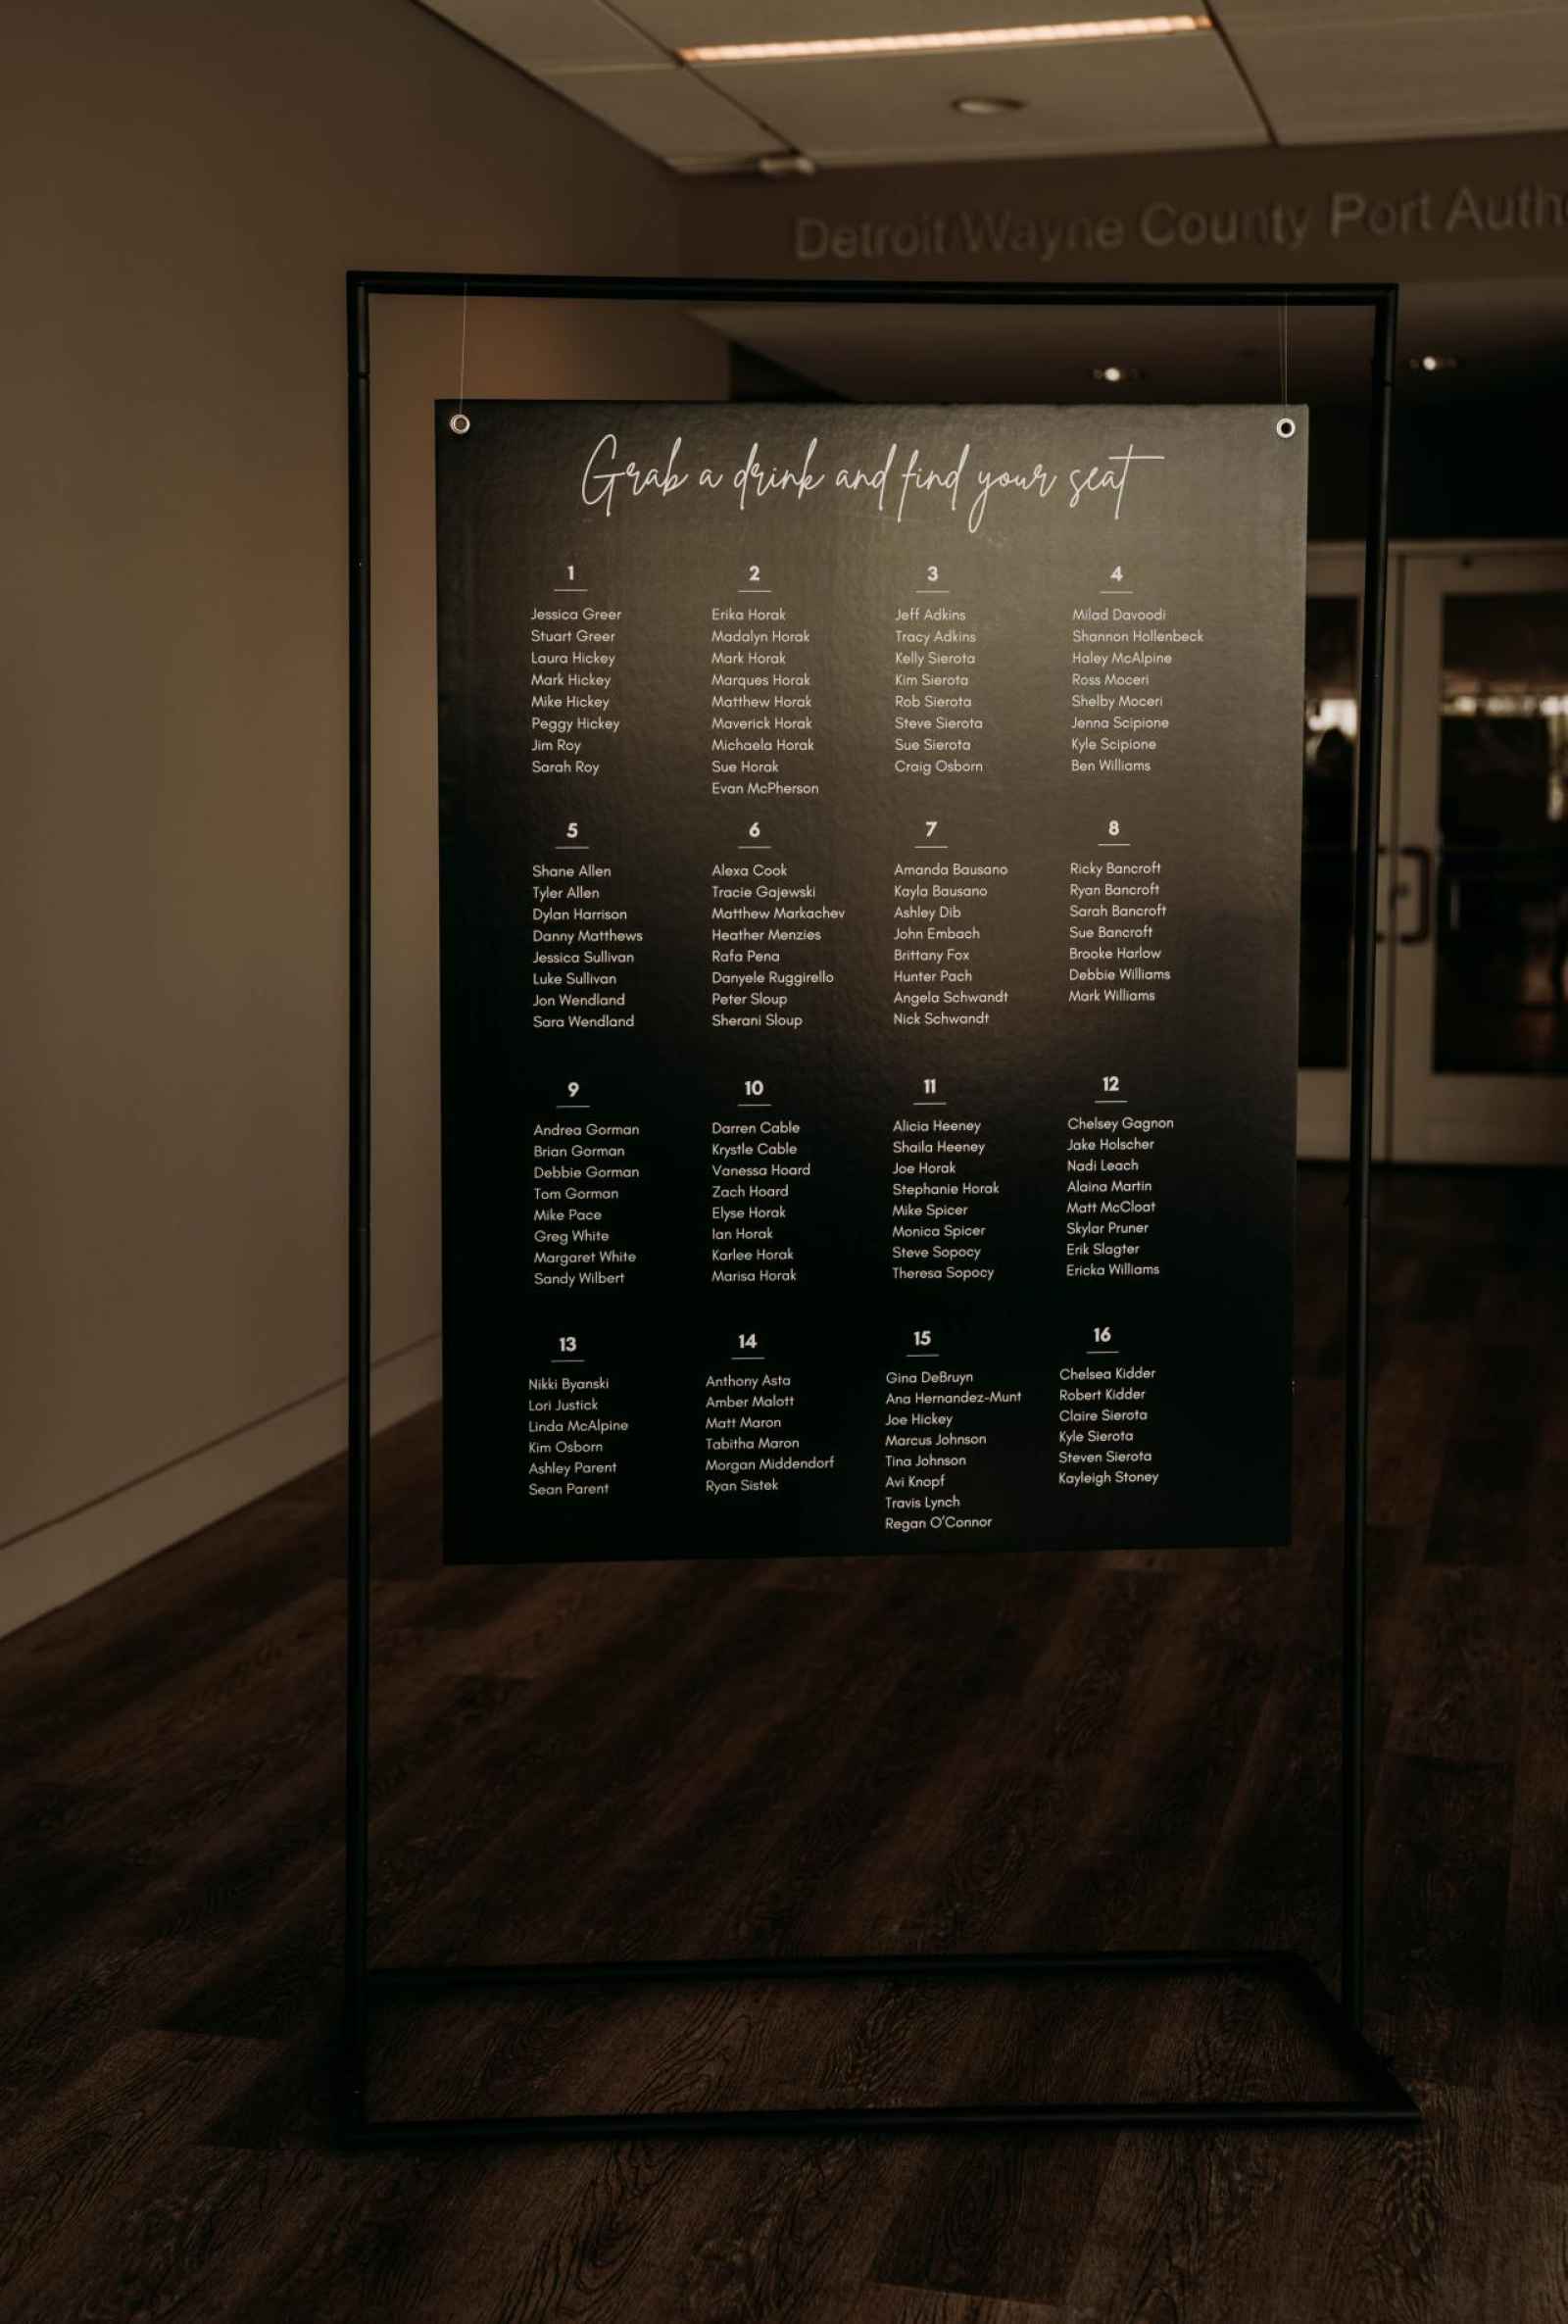 Detroit Wayne County Port Auth
Grab a drink and find your seat
1
Jessica Greer
Stuart Greer
Laura Hickey
Mark Hickey
Mike Hickey
Peggy Hickey
Jim Roy
Sarah Roy
2
Erika Horak
Madalyn Horak
Mark Horak
Marques Horak
Matthew Horak
Maverick Horak
Michaela Horak
Sue Horak
Evan McPherson
3
Jeff Adkins
Tracy Adkins
Kelly Sierota
Kim Sierota
Rob Sierota
Steve Sierota
Sue Sierota
Craig Osborn
4
Milad Davoodi
Shannon Hollenbeck
Haley McAlpine
Ross Moceri
Shelby Moceri
Jenna Scipione
Kyle Scipione
Ben Williams
5
Shane Allen
Tyler Allen
Dylan Harrison
Danny Matthews
Jessica Sullivan
Luke Sullivan
Jon Wendland
Sara Wendland
6
Alexa Cook
Tracie Gajewski
Matthew Markachev
Heather Menzies
Rafa Pena
Danyele Ruggirello
Peter Sloup
Sherani Sloup
7
Amanda Bausano
Kayla Bausano
Ashley Dib
John Embach
Brittany Fox
Hunter Pach
Angela Schwandt
Nick Schwandt
8
Ricky Bancroft
Ryan Bancroft
Sarah Bancroft
Sue Bancroft
Brooke Harlow
Debbie Williams
Mark Williams
9
Andrea Gorman
Brian Gorman
Debbie Gorman
Tom Gorman
Mike Pace
Greg White
Margaret White
Sandy Wilbert
10
Darren Cable
Krystle Cable
Vanessa Hoard
Zach Hoard
Elyse Horak
Ian Horak
Karlee Horak
Marisa Horak
11
Alicia Heeney
Shaila Heeney
Joe Horak
Stephanie Horak
Mike Spicer
Monica Spicer
Steve Sopocy
Theresa Sopocy
12
Chelsey Gagnon
Jake Holscher
Nadi Leach
Alaina Martin
Matt McCloat
Skylar Pruner
Erik Slagter
Ericka Williams
13
Nikki Byanski
Lori Justick
Linda McAlpine
Kim Osborn
Ashley Parent
Sean Parent
14
Anthony Asta
Amber Malott
Matt Maron
Tabitha Maron
Morgan Middendorf
Ryan Sistek
15
Gina DeBruyn
Ana Hernandez-Munt
Joe Hickey
Marcus Johnson
Tina Johnson
Avi Knopf
Travis Lynch
Regan O'Connor
16
Chelsea Kidder
Robert Kidder
Claire Sierota
Kyle Sierota
Steven Sierota
Kayleigh Stoney